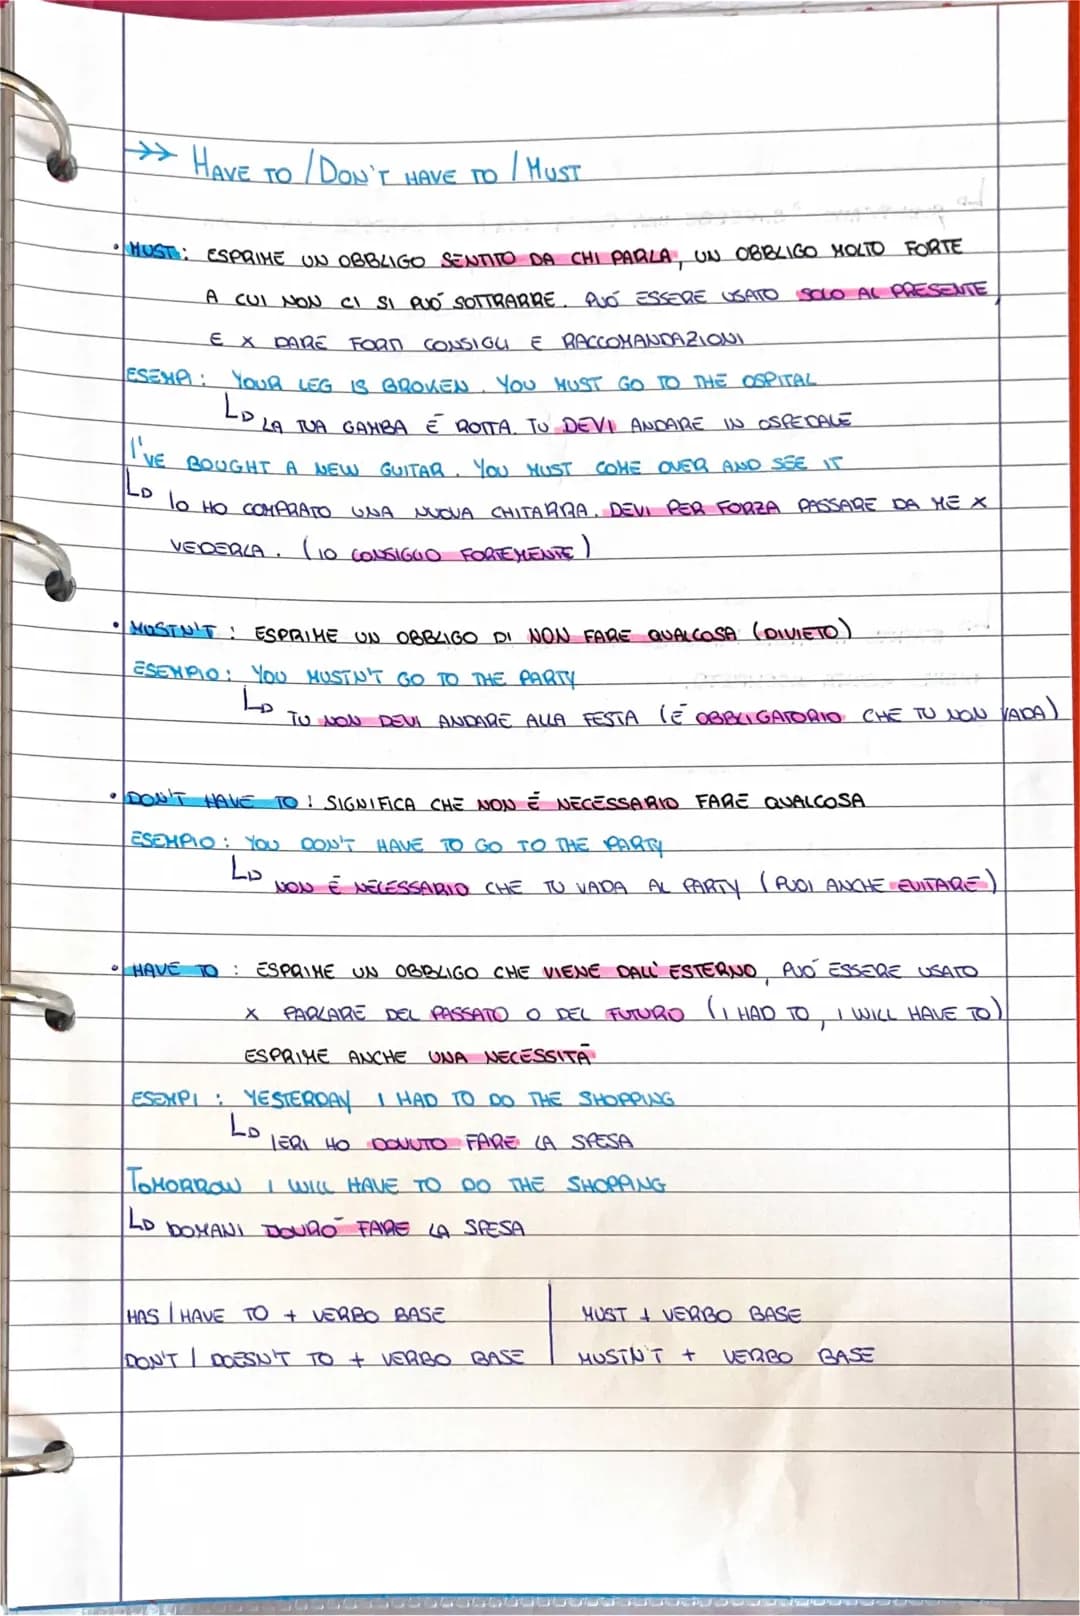 →» HAVE TO / DON'T HAVE TO / MUST
• MUST: ESPRIME UN OBBLIGO SENTITO DA CHI PARLA, UN OBBLIGO MOLTO FORTE
A CUI NON CI SI PUÓ SOTTRARRE. PUÓ ESSERE USATO SOLO AL PRESENTE,
E X DARE FORTI CONSIGLI E RACCOMANDAZIONI
ESEMPI: YOUR LEG IS BROKEN. YOU MUST GO TO THE OSPITAL
LA TUA GAMBA É ROTTA. TU DEVI ANDARE IN OSPEDALE
I'VE BOUGHT A NEW GUITAR. YOU MUST COME OVER AND SEE IT
IO HO COMPRATO UNA NUOVA CHITARRA. DEVI PER FORZA PASSARE DA ME X
VEDERLA. (IO CONSIGLIO FORTEMENTE)
• MOSTN'T: ESPRIME UN OBBLIGO DI NON FARE QUALCOSA (DIVIETO)
ESEMPIO: YOU MUSTN'T GO TO THE PARTY
TU NON DEVI ANDARE ALLA FESTA (É OBBLIGATORIO CHE TU NON VADA)
• DON'T HAVE TO: SIGNIFICA CHE NON É NECESSARIO FARE QUALCOSA
ESEMPIO: YOU DON'T HAVE TO GO TO THE PARTY
NON É NECESSARIO CHE TU VADA AL PARTY (PUOI ANCHE EVITARE)
• HAVE TO: ESPRIME UN OBBLIGO CHE VIENE DALL'ESTERNO, PUÓ ESSERE USATO
X PARLARE DEL PASSATO O DEL FUTURO (I HAD TO, I WILL HAVE TO)
ESPRIME ANCHE UNA NECESSITÁ
ESEMPI: YESTERDAY I HAD TO DO THE SHOPPING
IERI HO DOVUTO FARE LA SPESA
TOMORROW I WILL HAVE TO DO THE SHOPPING
DOMANI DOVRÓ FARE LA SPESA
HAS / HAVE TO + VERBO BASE | MUST + VERBO BASE
DON'T / DOESN'T TO + VERBO BASE | MUSTN'T + VERBO BASE